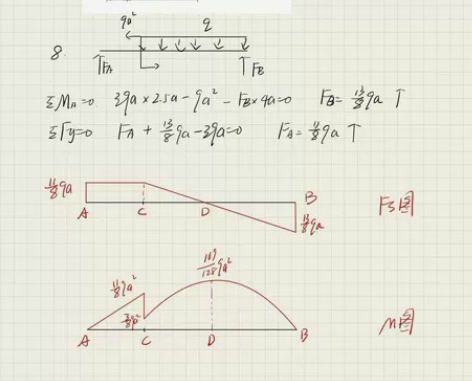 qa² q
8.
F_A F_B
ΣM_A=0 3qa×2.5a-qa²-F_B×4a=0 F_B=13/8 qa ↑
ΣFy=0 F_A+13/8 qa-3qa=0 F_A=11/8 qa ↑
11/8 qa
A C D B Fs图
13/8 qa
169/128 qa²
11/8 qa²
3/8 qa²
A C D B M图